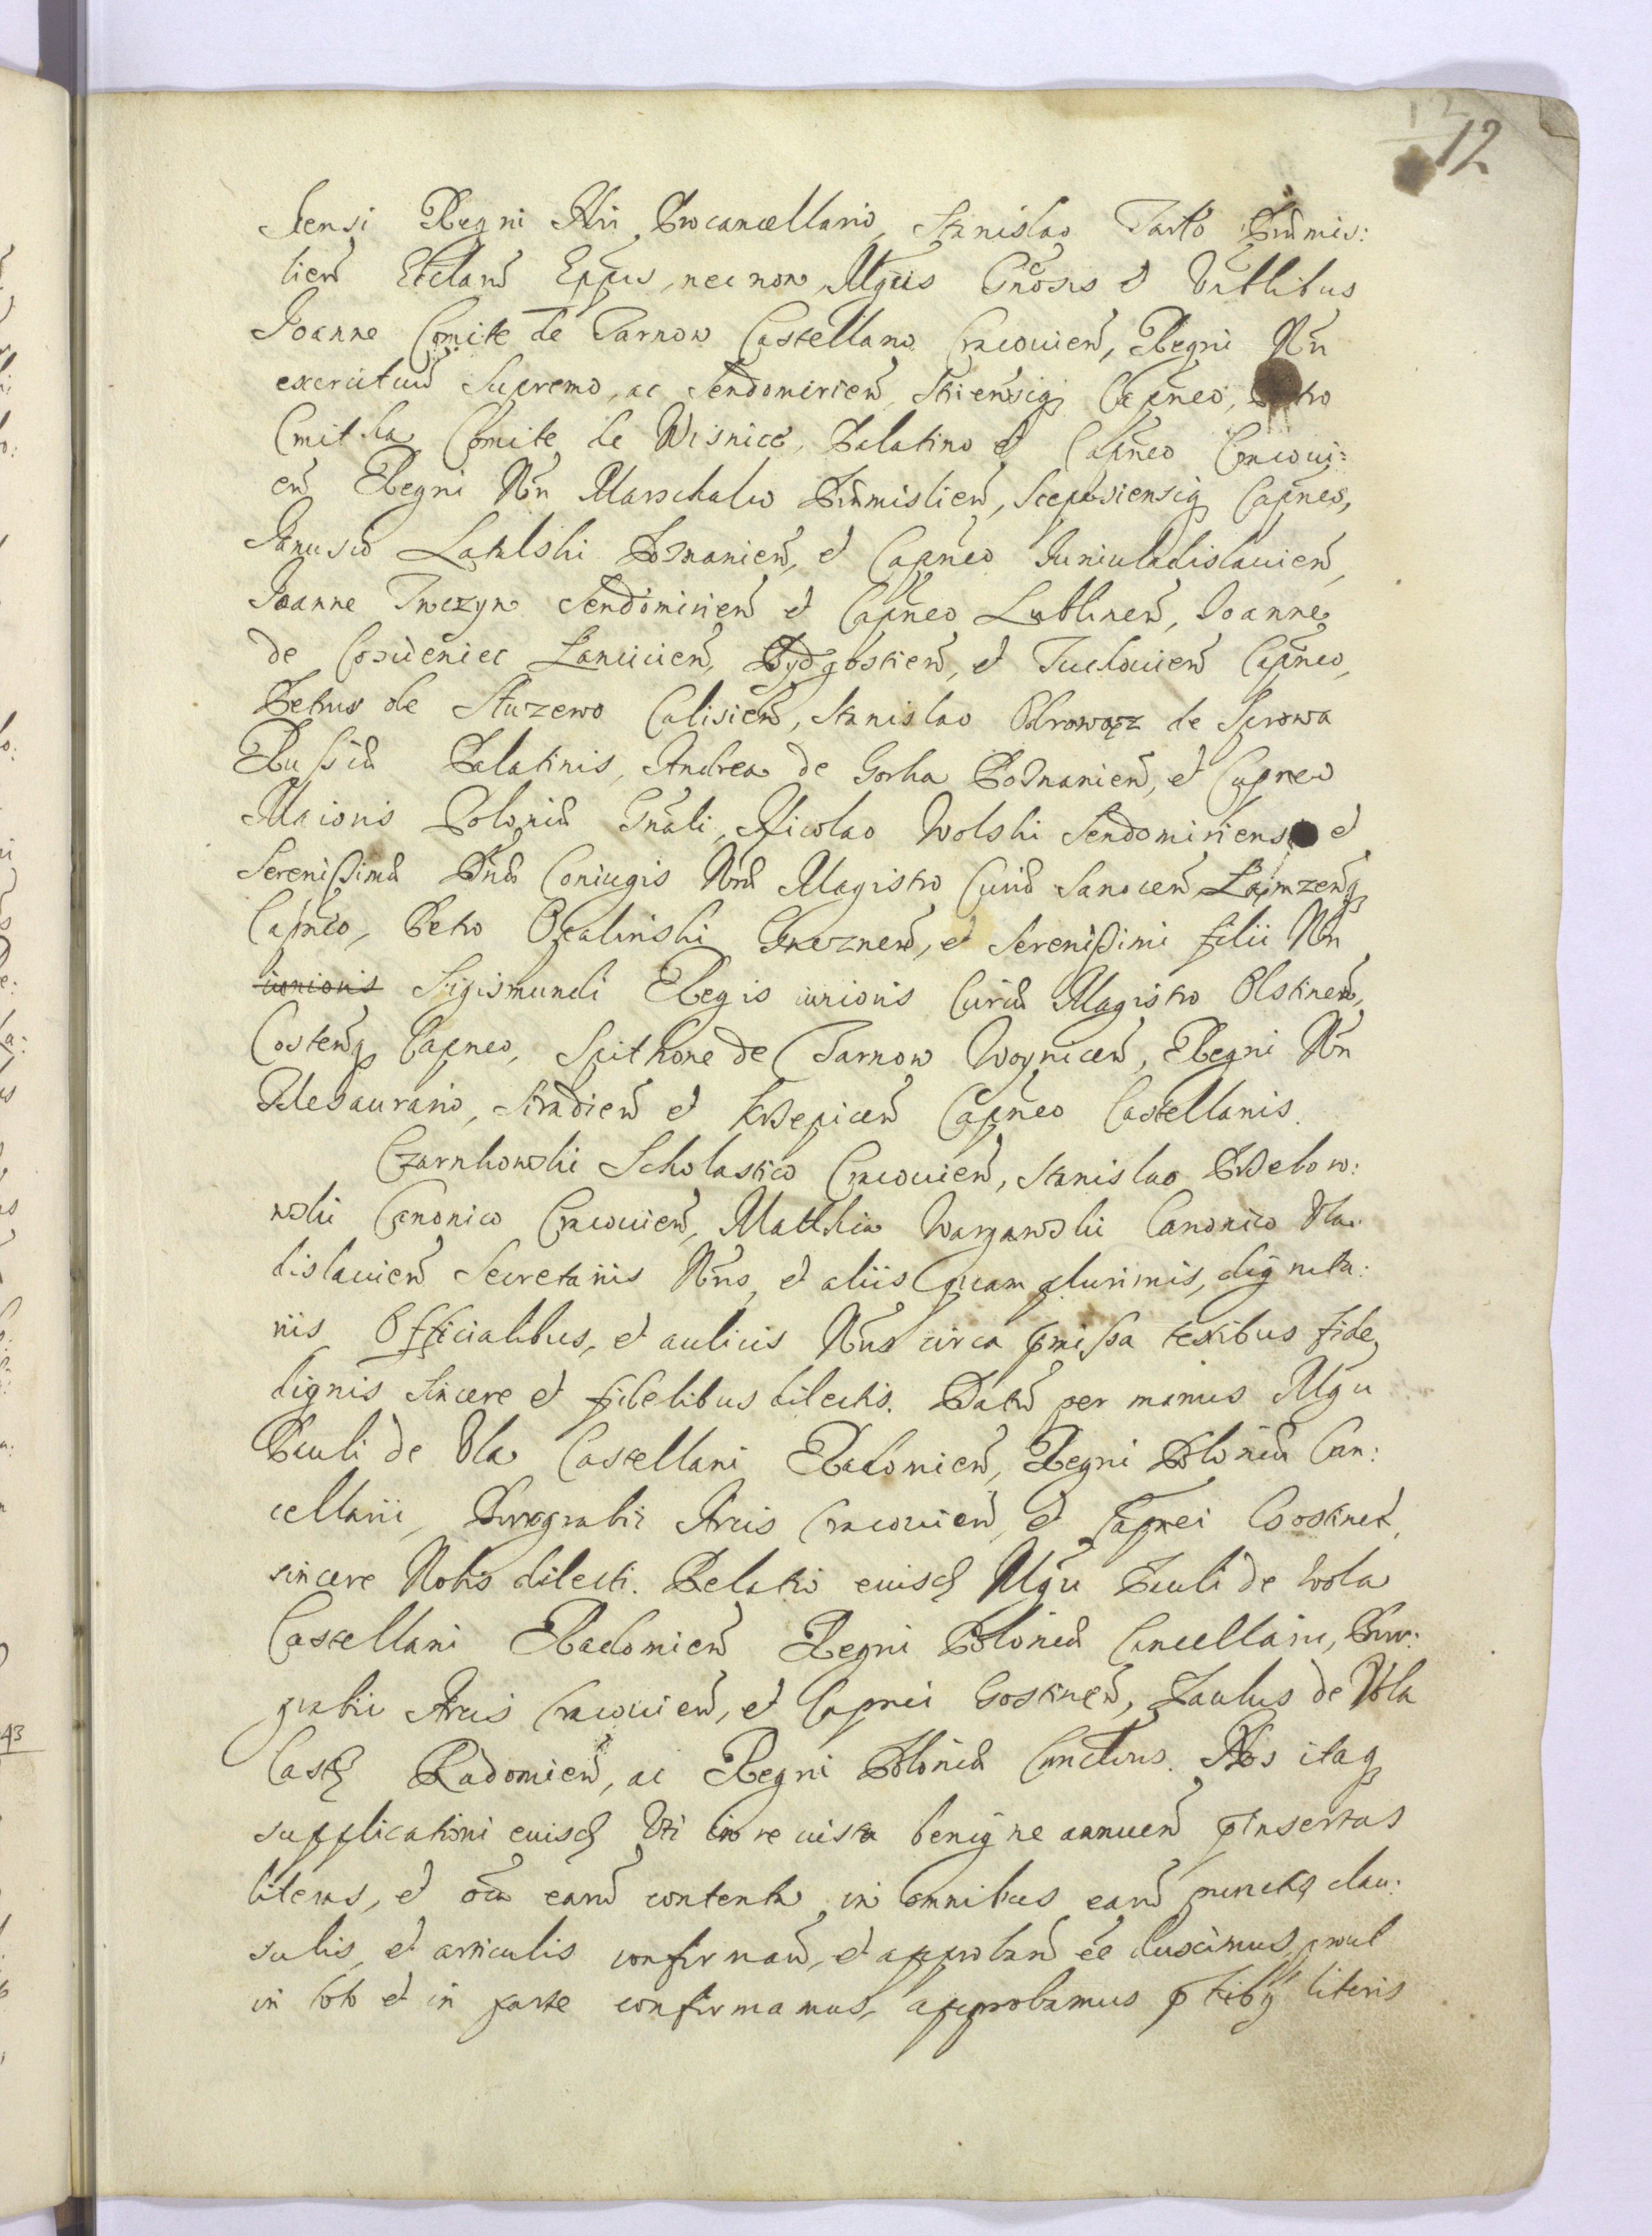 12
stensi Regni Nri Procancellario, Stanislao Tarło Præmis:
lien Ecclarũ Eppis, nec non Mgcis Gnosis et Vnblibus
Joanne Comite de Tarnow Castellano Cracouien, Regni Nri
exercituũ Supremo, ac Sendomirien, Striensiq Capneo, Petro
Cmitha Comite de Wisnicẽ, Palatino et Capneo Cracoui:
en Regni Nri Marschalco Præmislien, Scepusiensiq Capneo,
Janusio Latalski Posnanien, et Capneo Juniuladislauien,
Joanne Tnczyn Sendomirien et Capneo Lublinen, Joanne
de Coscieniec Lancicien, Bydgostien, et Tuchouien Capneo,
Petrus de Sluzewo Calisien, Stanislao Odrowąz de Sprowa
Russiæ Palatinis, Andrea de Gorka Posnanien, et Capneo
Maioris Poloniæ Gnali, Nicolao Wolski Sendomiriens et
Serenissimæ Dnæ Coniugis Nræ Magistro Curiæ Sanocen, Łomzenq
Capneo, Petro Opalinski Gneznen, et Serenissimi filii Nri
iunioris Sigismundi Regis iunioris Curiæ Magistro Olstinen,
Costenq Capneo, Spithone de Tarnow Woynicen, Regni Nri
Thesaurario, Siradien et Krzepicen Capneo Castellanis.
Czarnkowski Scholastico Cracouien, Stanislao Przebow:
wski Canonico Cracouien, Matthia Wargawski Canonico Vla:
dislauien Secretariis Nris, et aliis quam plurimis, dignita:
riis Officialibus, et aulicis Nris circa pmissa testibus fide
dignis Sincere et fidelibus dilectis. Datũ per manus Mgci
Pauli de Vola Castellani Radomien, Regni Poloniæ Can:
cellarii, Burograbii Arcis Cracouien, et Capnei Gostinen,
sincere Nobis dilecti. Relatio eiusd Mgci Pauli de Wola
Castellani Radomien Regni Poloniæ Cancellarii, Bur:
grabii Arcis Cracouien, et Capnei Gostinen, Paulus de Vola
Castel Radomien, ac Regni Poloniæ Cancellarius. Nos itaq
supplicationi eiusd Vti in re iusta benigne annuen pinsertas
literas, et oia earũ contenta in omnibus earũ punctis clau:
sulis, et articulis confirman, et approban eẽ duximus, prout
in toto et in parte confirmamus, approbamus pntibq literis